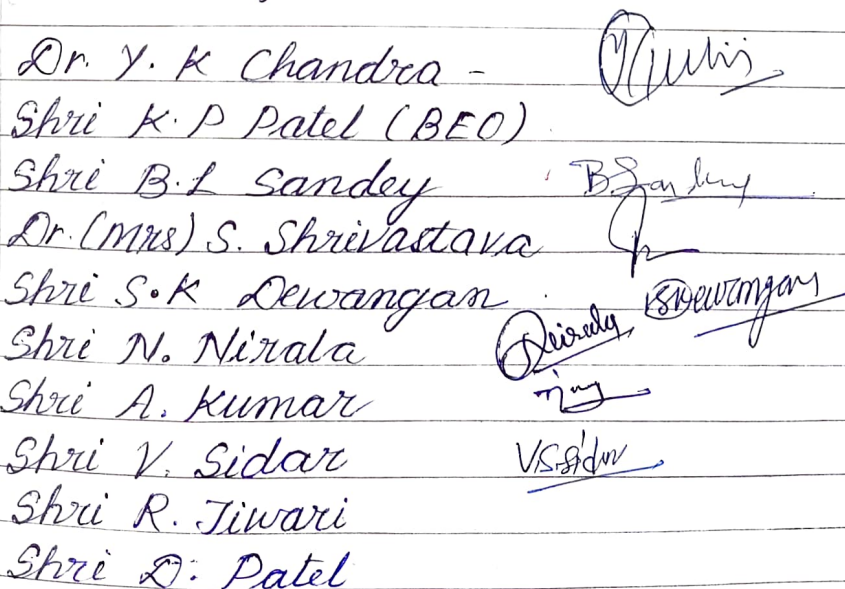 Dr. Y. K Chandra -
Shri K. P Patel (BEO)
Shri B. L Sandey
Dr. (Mrs) S. Shrivastava
Shri S. K Dewangan
Shri N. Nirala
Shri A. Kumar
Shri V. Sidar V.S.Sidar
Shri R. Tiwari
Shri D. Patel